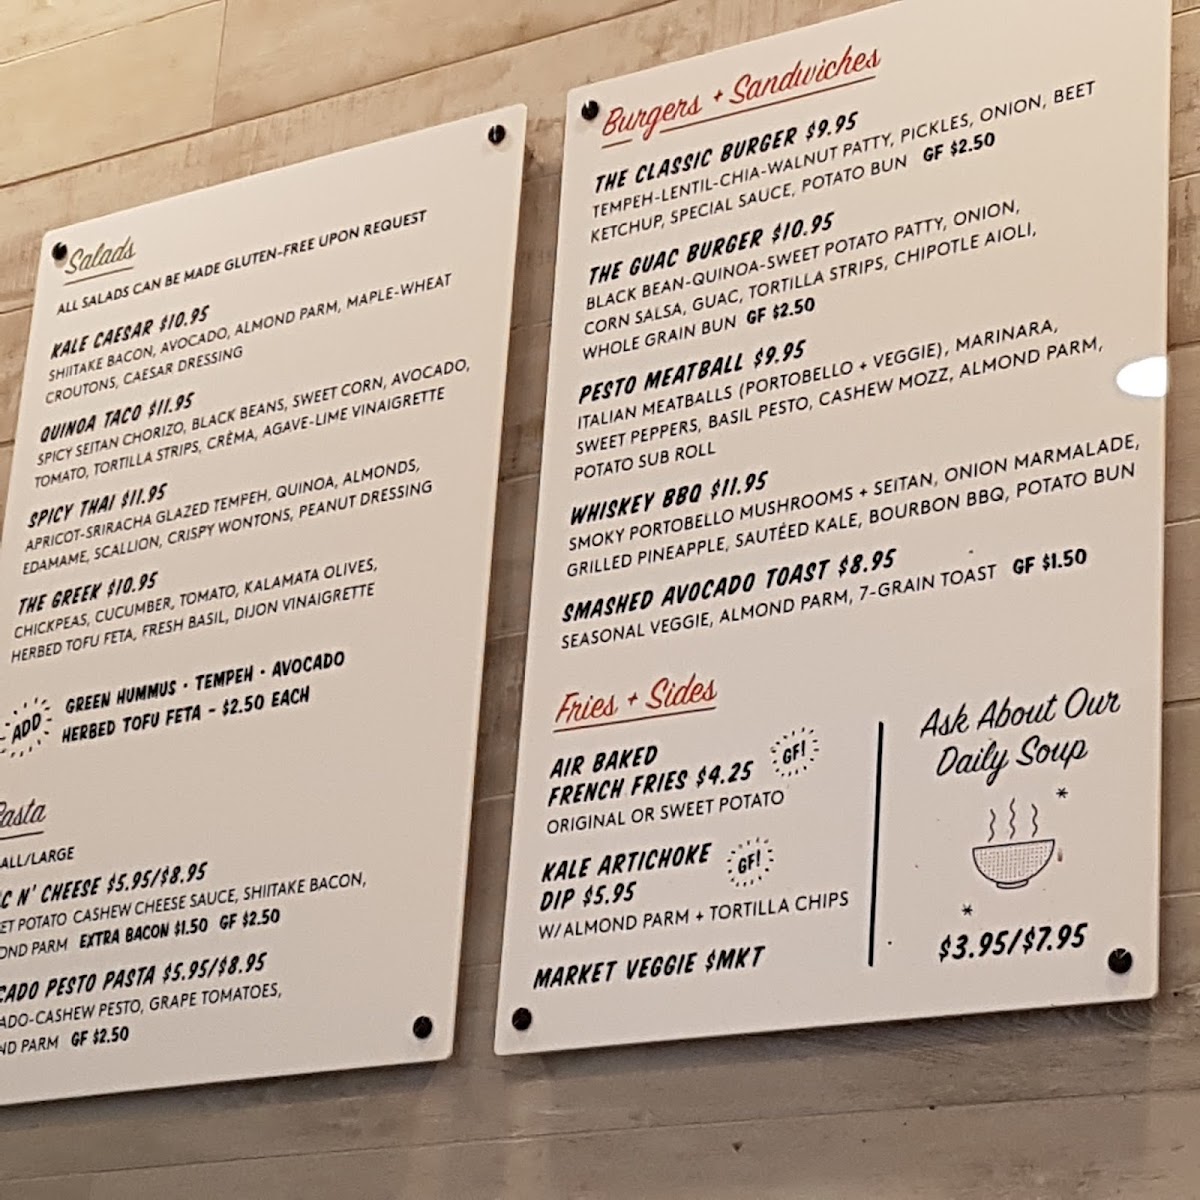 Salads
ALL SALADS CAN BE MADE GLUTEN-FREE UPON REQUEST
KALE CAESAR $10.95
SHIITAKE BACON, AVOCADO, ALMOND PARM, MAPLE-WHEAT
CROUTONS, CAESAR DRESSING
QUINOA TACO $11.95
SPICY SEITAN CHORIZO, BLACK BEANS, SWEET CORN, AVOCADO,
TOMATO, TORTILLA STRIPS, CRÈMA, AGAVE-LIME VINAIGRETTE
SPICY THAI $11.95
APRICOT-SRIRACHA GLAZED TEMPEH, QUINOA, ALMONDS,
EDAMAME, SCALLION, CRISPY WONTONS, PEANUT DRESSING
THE GREEK $10.95
CHICKPEAS, CUCUMBER, TOMATO, KALAMATA OLIVES,
HERBED TOFU FETA, FRESH BASIL, DIJON VINAIGRETTE
ADD
GREEN HUMMUS · TEMPEH · AVOCADO
HERBED TOFU FETA - $2.50 EACH
Pasta
ALL/LARGE
C N' CHEESE $5.95/$8.95
ET POTATO CASHEW CHEESE SAUCE, SHIITAKE BACON,
OND PARM EXTRA BACON $1.50 GF $2.50
CADO PESTO PASTA $5.95/$8.95
ADO-CASHEW PESTO, GRAPE TOMATOES,
ND PARM GF $2.50
Burgers + Sandwiches
THE CLASSIC BURGER $9.95
TEMPEH-LENTIL-CHIA-WALNUT PATTY, PICKLES, ONION, BEET
KETCHUP, SPECIAL SAUCE, POTATO BUN GF $2.50
THE GUAC BURGER $10.95
BLACK BEAN-QUINOA-SWEET POTATO PATTY, ONION,
CORN SALSA, GUAC, TORTILLA STRIPS, CHIPOTLE AIOLI,
WHOLE GRAIN BUN GF $2.50
PESTO MEATBALL $9.95
ITALIAN MEATBALLS (PORTOBELLO + VEGGIE), MARINARA,
SWEET PEPPERS, BASIL PESTO, CASHEW MOZZ, ALMOND PARM,
POTATO SUB ROLL
WHISKEY BBQ $11.95
SMOKY PORTOBELLO MUSHROOMS + SEITAN, ONION MARMALADE,
GRILLED PINEAPPLE, SAUTÉED KALE, BOURBON BBQ, POTATO BUN
SMASHED AVOCADO TOAST $8.95
SEASONAL VEGGIE, ALMOND PARM, 7-GRAIN TOAST GF $1.50
Fries + Sides
AIR BAKED
FRENCH FRIES $4.25 GF!
ORIGINAL OR SWEET POTATO
KALE ARTICHOKE GF!
DIP $5.95
W/ALMOND PARM + TORTILLA CHIPS
MARKET VEGGIE $MKT
Ask About Our
Daily Soup
$3.95/$7.95